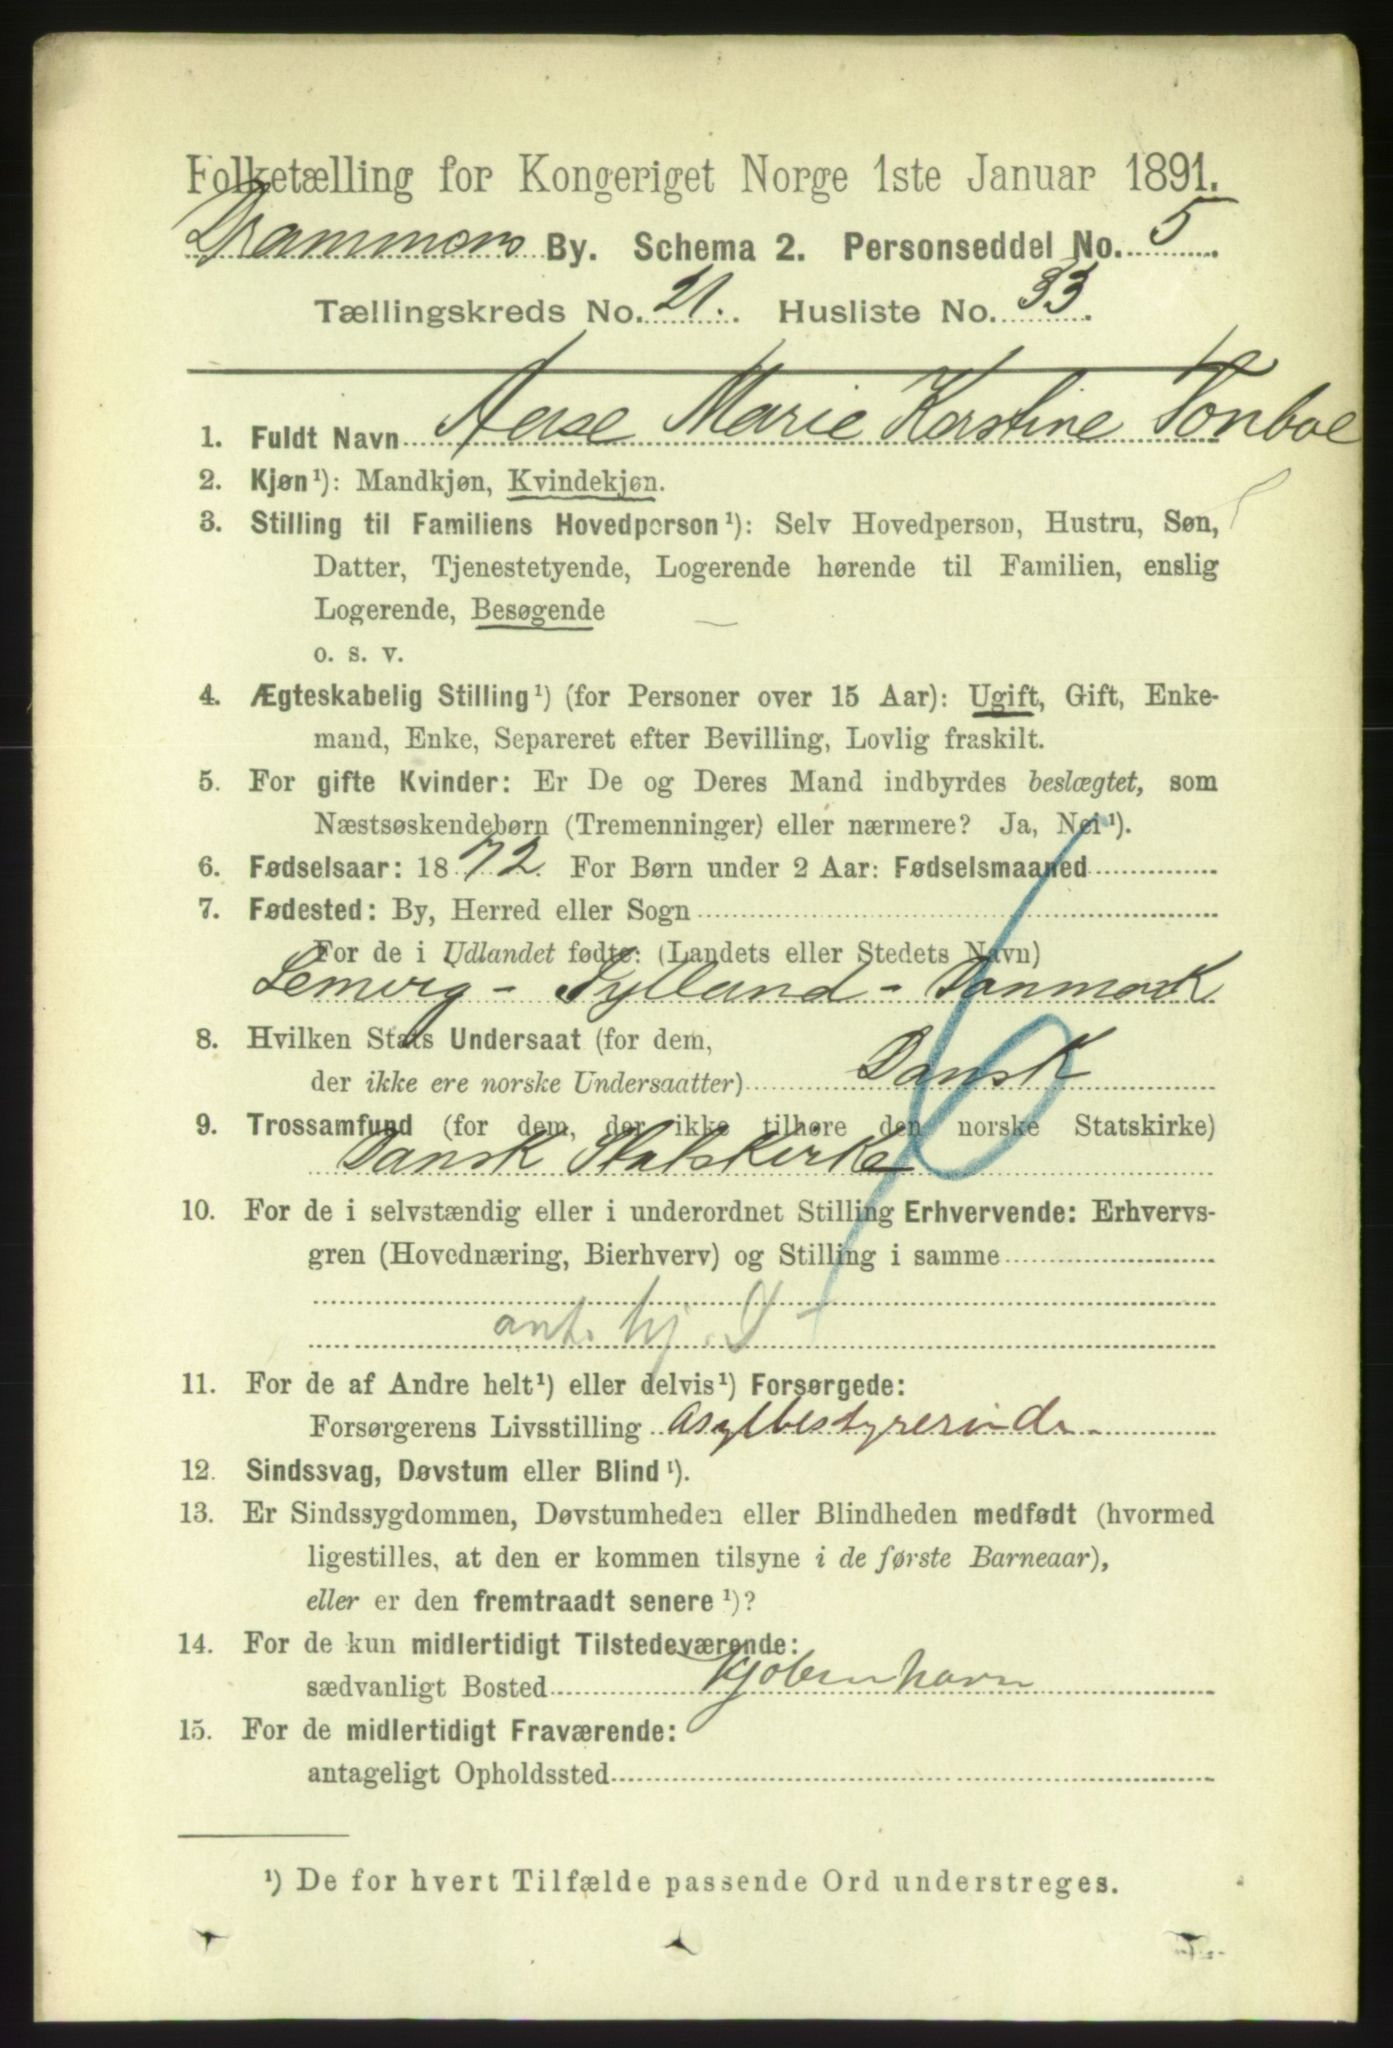 Folketælling for Kongeriget Norge 1ste Januar 1891.
Drammens By. Schema 2. Personseddel No. 5.
Tællingskreds No. 21. Husliste No. 33.
1. Fuldt Navn Marie Kerstine Tonboe
2. Kjøn¹): Mandkjøn, Kvindekjøn.
3. Stilling til Familiens Hovedperson¹): Selv Hovedperson, Hustru, Søn,
Datter, Tjenestetyende, Logerende hørende til Familien, enslig
Logerende, Besøgende
o. s. v.
4. Ægteskabelig Stilling¹) (for Personer over 15 Aar): Ugift, Gift, Enke-
mand, Enke, Separeret efter Bevilling, Lovlig fraskilt.
5. For gifte Kvinder: Er De og Deres Mand indbyrdes beslægtet, som
Næstsøskendebørn (Tremenninger) eller nærmere? Ja, Nei¹).
6. Fødselsaar: 1872. For Børn under 2 Aar: Fødselsmaaned
7. Fødested: By, Herred eller Sogn
For de i Udlandet fødte: (Landets eller Stedets Navn)
Lemvig - Jylland - Danmark
8. Hvilken Stats Undersaat (for dem,
der ikke ere norske Undersaatter) Dansk
9. Trossamfund (for dem, der ikke tilhøre den norske Statskirke)
Dansk Statskirke
10. For de i selvstændig eller i underordnet Stilling Erhvervende: Erhvervs-
gren (Hovednæring, Bierhverv) og Stilling i samme
ant. hj. D
11. For de af Andre helt¹) eller delvis¹) Forsørgede:
Forsørgerens Livsstilling Asylbestyrerinde
12. Sindssvag, Døvstum eller Blind¹).
13. Er Sindssygdommen, Døvstumheden eller Blindheden medfødt (hvormed
ligestilles, at den er kommen tilsyne i de første Barneaar),
eller er den fremtraadt senere¹)?
14. For de kun midlertidigt Tilstedeværende:
sædvanligt Bosted Kjøbenhavn
15. For de midlertidigt Fraværende:
antageligt Opholdssted
¹) De for hvert Tilfælde passende Ord understreges.